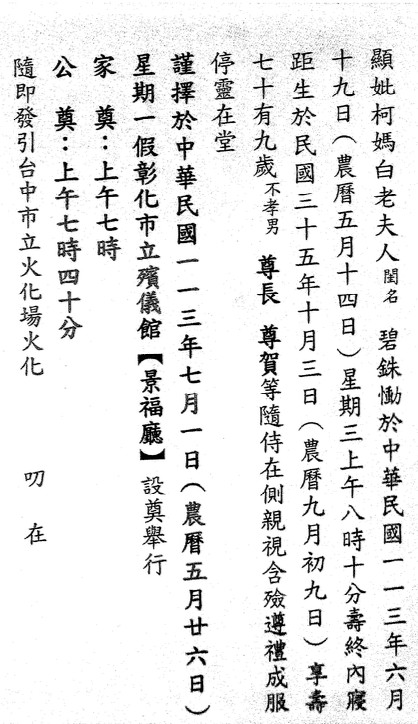 顯妣柯媽白老夫人閨名　碧銖慟於中華民國一一三年六月
十九日（農曆五月十四日）星期三上午八時十分壽終內寢
距生於民國三十五年十月三日（農曆九月初九日）享壽
七十有九歲不孝男　尊長　尊賀等隨侍在側親視含殮遵禮成服
停靈在堂
謹擇於中華民國一一三年七月一日（農曆五月廿六日）
星期一假彰化市立殯儀館【景福廳】設奠舉行
家　奠：上午七時
公　奠：上午七時四十分
隨即發引台中市立火化場火化　　叨　在